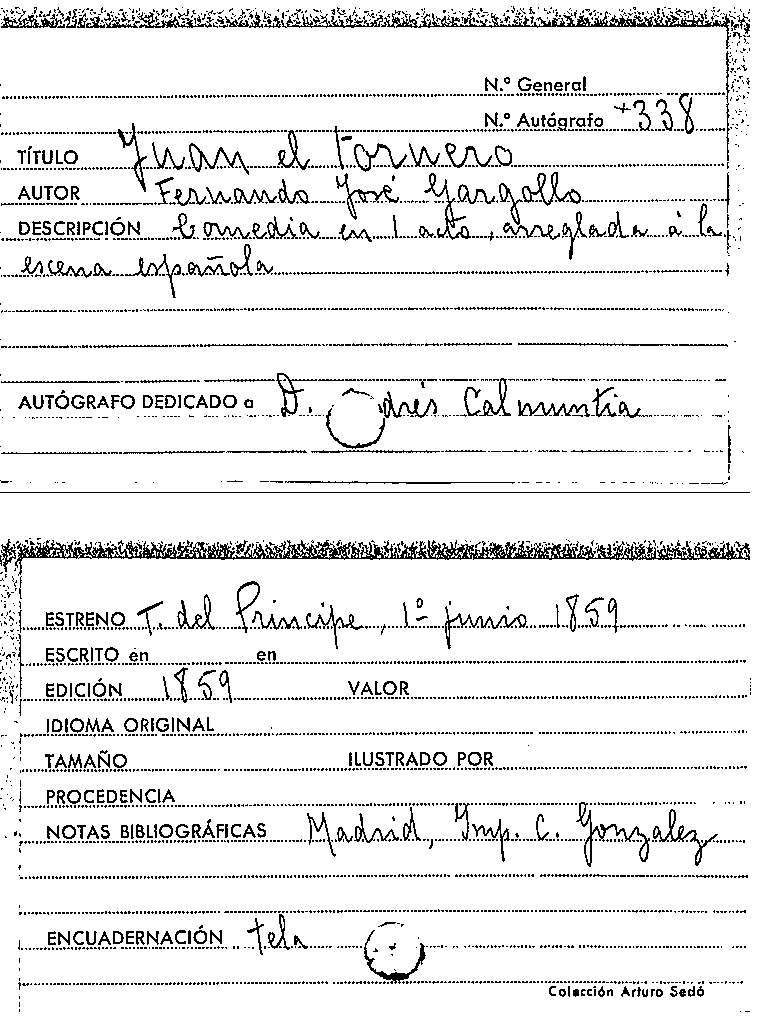 N.º General
N.º Autógrafo +338
TÍTULO Juan el tornero
AUTOR Fernando José Gargollo
DESCRIPCIÓN Comedia en 1 acto, arreglada á la
escena española
AUTÓGRAFO DEDICADO a D. drés Calmuntia
ESTRENO T. del Principe, 1º junio 1859
ESCRITO en en
EDICIÓN 1859 VALOR
IDIOMA ORIGINAL
TAMAÑO ILUSTRADO POR
PROCEDENCIA
NOTAS BIBLIOGRÁFICAS Madrid, Imp. C. Gonzalez
ENCUADERNACIÓN tela
Colección Arturo Sedó